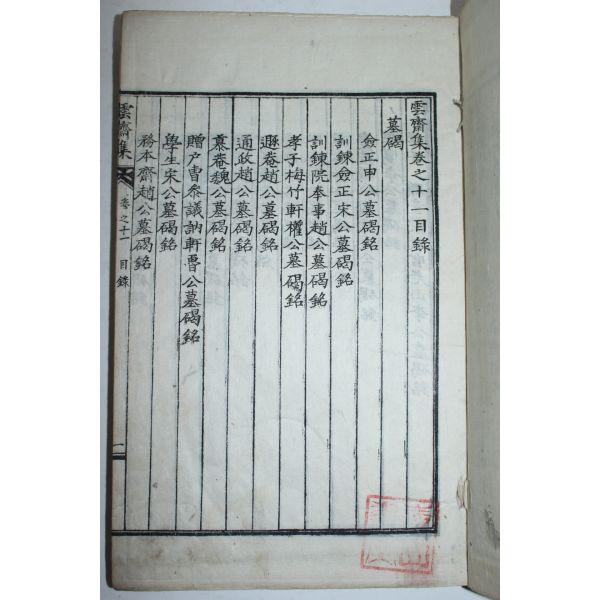 雲齋集卷之十一目錄
墓碣
僉正申公墓碣銘
訓鍊僉正宋公墓碣銘
訓鍊院奉事趙公墓碣銘
孝子梅竹軒權公墓碣銘
遯菴趙公墓碣銘
通政趙公墓碣銘
慕菴魏公墓碣銘
贈戶曺叅議訥軒曺公墓碣銘
學生宋公墓碣銘
務本齋趙公墓碣銘
雲齋集
卷之十一
目錄
一